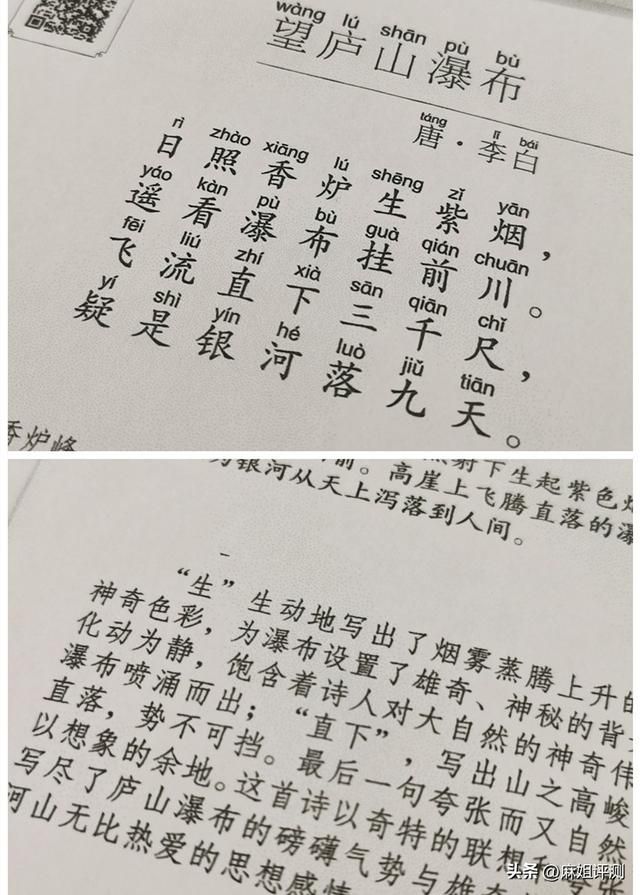 wàng lú shān pù bù
望庐山瀑布
táng lǐ bái
唐·李白
rì zhào xiāng lú shēng zǐ yān
日照香炉生紫烟，
yáo kàn pù bù guà qián chuān
遥看瀑布挂前川。
fēi liú zhí xià sān qiān chǐ
飞流直下三千尺，
yí shì yín hé luò jiǔ tiān
疑是银河落九天。
香炉峰
射下生起紫色烟
银河从天上泻落到人间。
前。高崖上飞腾直落的瀑
“生”生动地写出了烟雾蒸腾上升的
神奇色彩，为瀑布设置了雄奇、神秘的背
化动为静，饱含着诗人对大自然的神奇伟
瀑布喷涌而出；“直下”，写出山之高峻
直落，势不可挡。最后一句夸张而又自然
以想象的余地。这首诗以奇特的联想
写尽了庐山瀑布的磅礴气势与雄
河山无比热爱的思想感情
头条 @麻姐评测